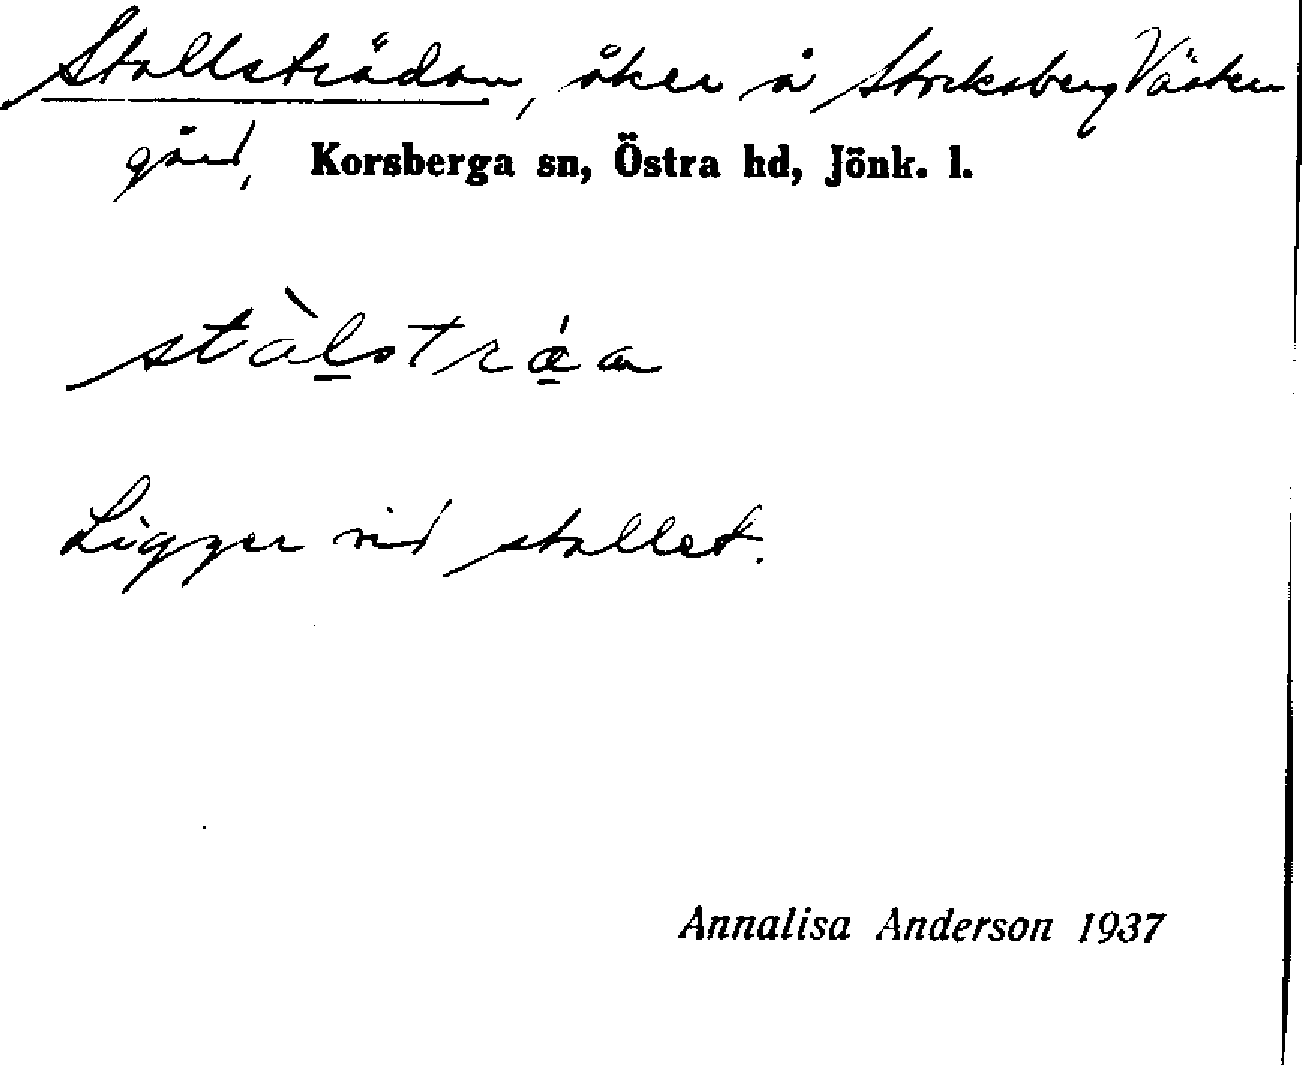 Stallsträdan, åker å Stocksberg Väster
gård, Korsberga sn, Östra hd, Jönk. l.
stàlsträ́a
Ligger vid stallet.
Annalisa Anderson 1937